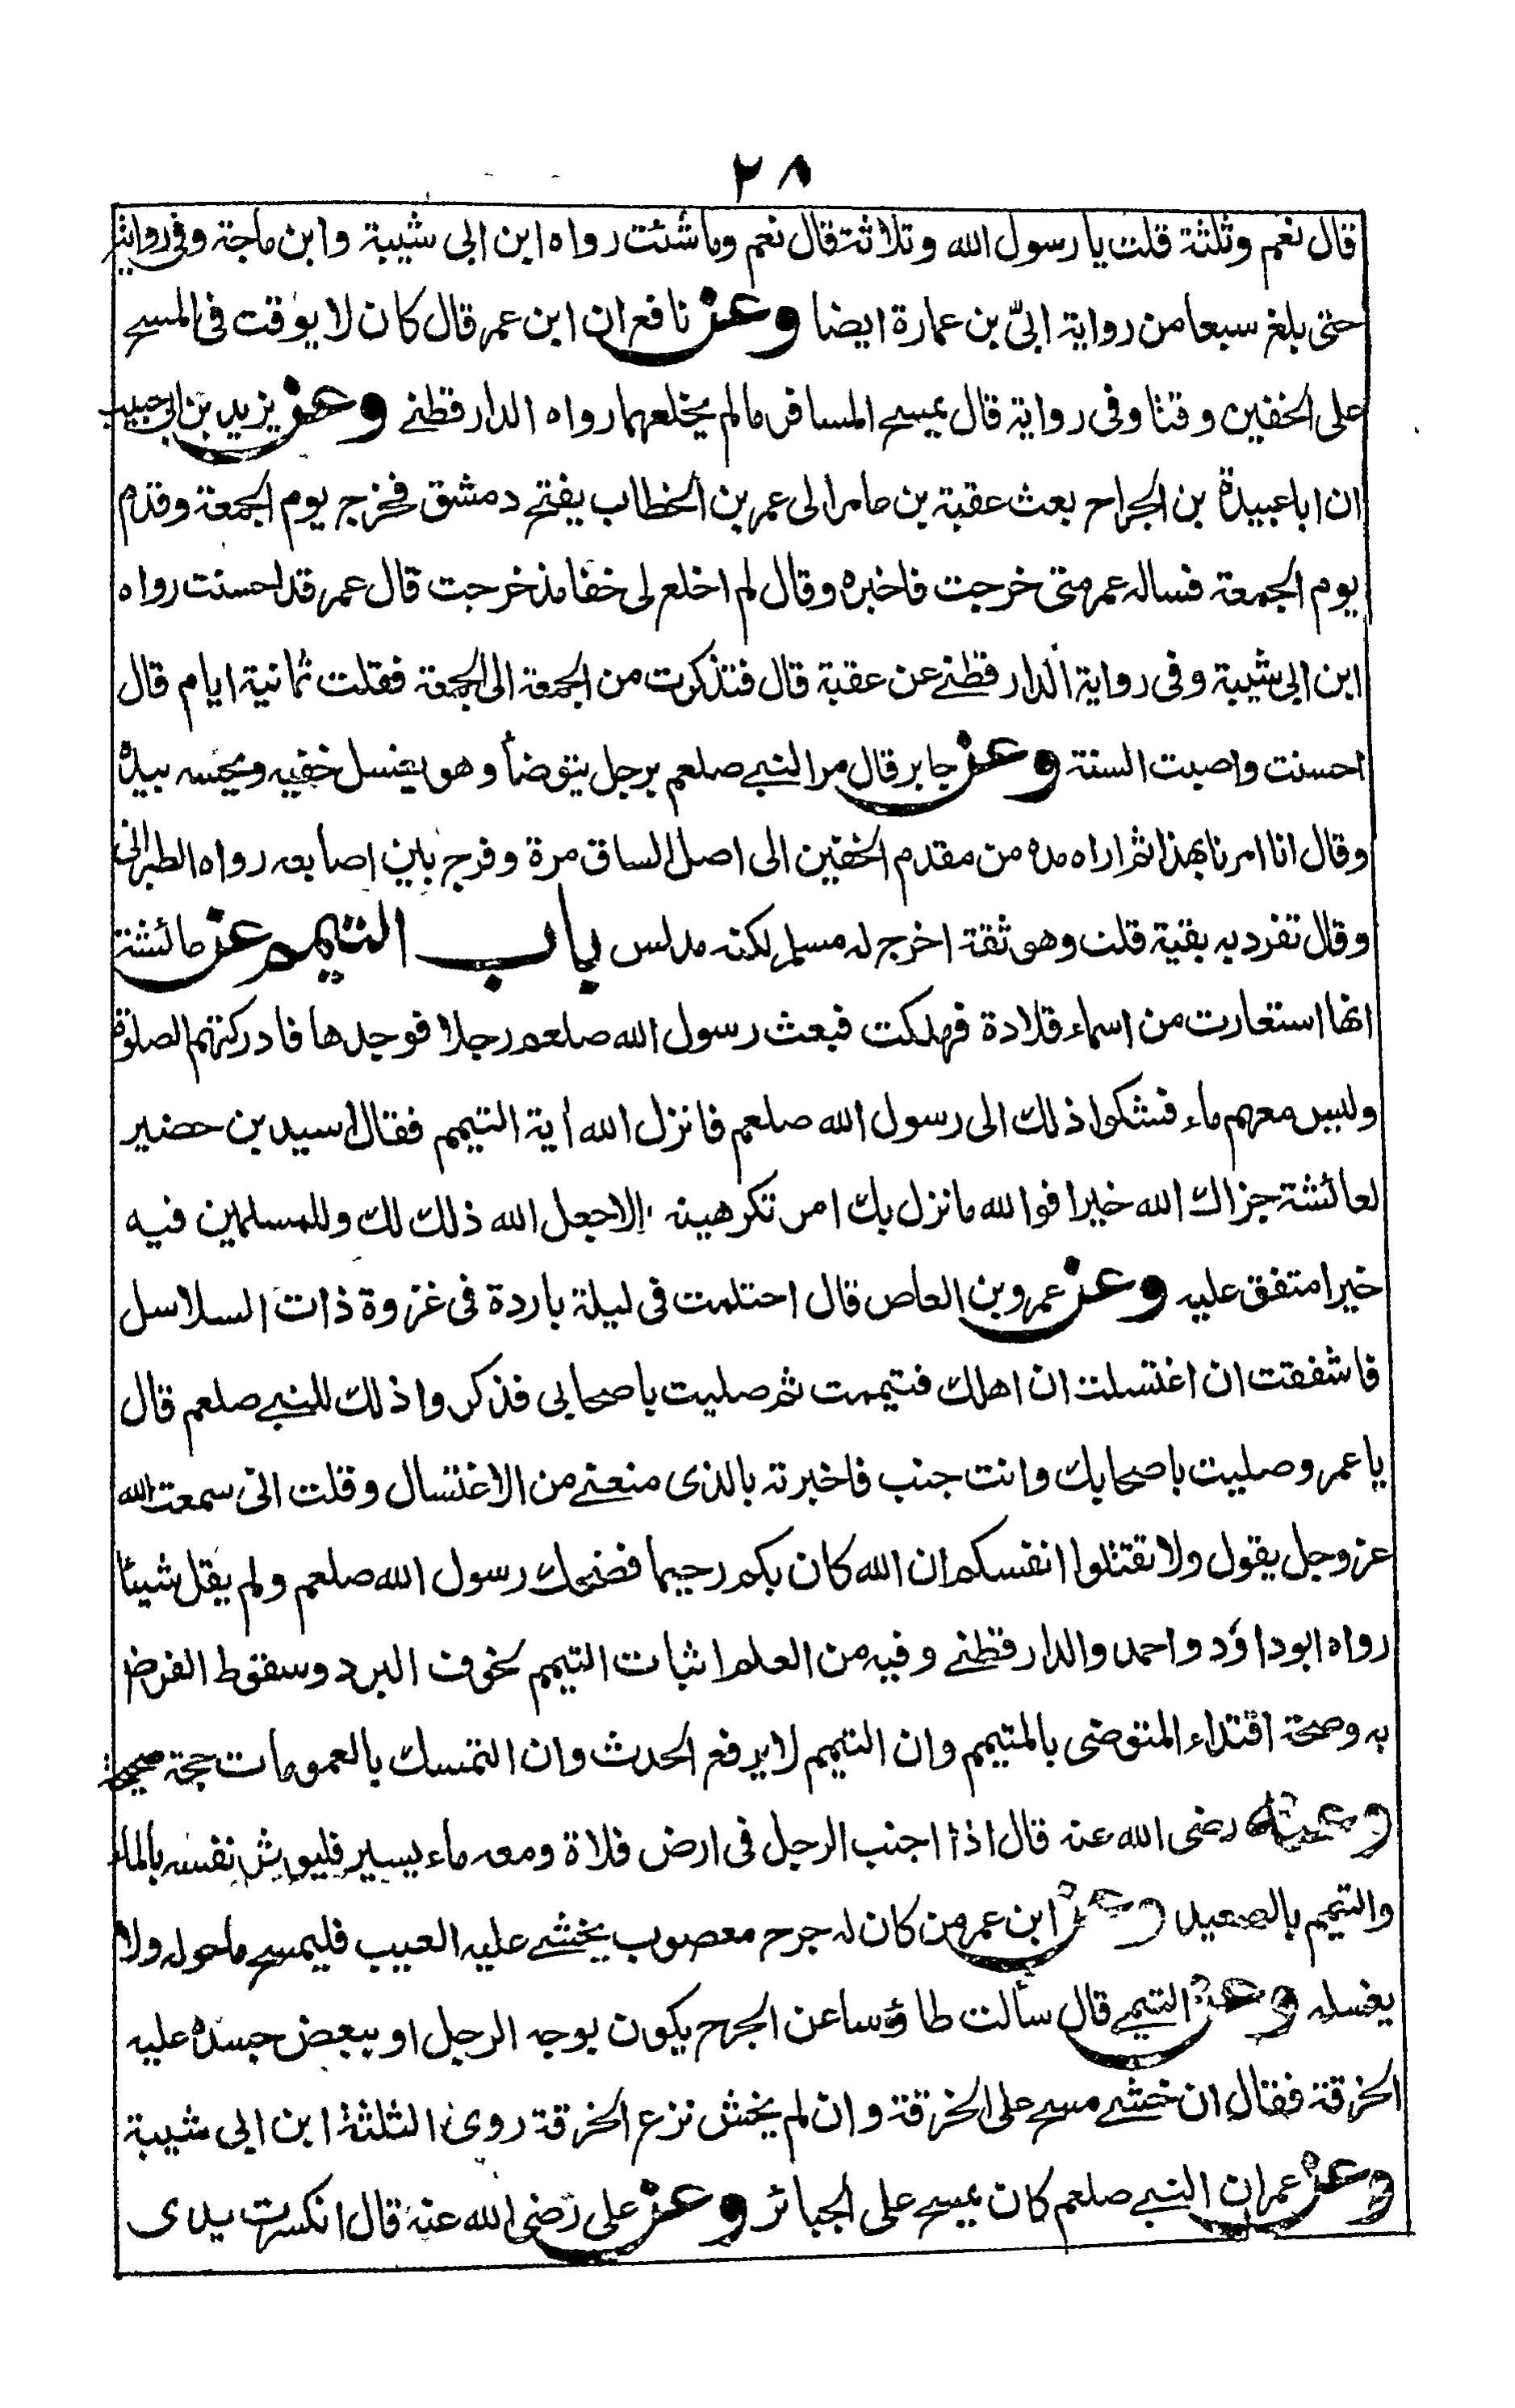 ٢٨
قال نعم وثلثة قلت يا رسول الله وثلاثة قال نعم وما شئت رواه ابن ابى شيبة وابن ماجة وفى رواية
حتى بلغ سبعا من رواية ابىّ بن عمارة ايضا وعن نافع ان ابن عمر قال كان لا يوقت فى المسح
على الخفين وقتا وفى رواية قال يمسح المسافر ما لم يخلعهما رواه الدارقطنے وعن يزيد بن ابى حبيب
ان ابا عبيدة بن الجراح بعث عقبة بن عامر الى عمر بن الخطاب يفتح دمشق فخرج يوم الجمعة وقدم
يوم الجمعة فساله عمر متى خرجت فاخبره وقال لم اخلع لى خفا مذ خرجت قال عمر قد احسنت رواه
ابن ابى شيبة وفى رواية الدارقطنے عن عقبة قال فتذكرت من الجمعة الى الجمعة فقلت ثمانية ايام قال
احسنت واصبت السنة وعن جابر قال مر النبے صلعم برجل يتوضأ وهو يغسل خفيه ونخسه بيده
وقال انا امرنا بهذا ثم اراه مده من مقدم الخفين الى اصل الساق مرة وفرج بين اصابعه رواه الطبرانى
وقال تفرد به بقية قلت وهو ثقة اخرج له مسلم لكنه مدلس باب التيمم عن عائشة
انها استعارت من اسماء قلادة فهلكت فبعث رسول الله صلعم رجلا فوجدها فادركتهم الصلوة
وليس معهم ماء فشكوا ذلك الى رسول الله صلعم فانزل الله أية التيمم فقال اسيد بن حضير
لعائشة جزاك الله خيرا فوالله ما نزل بك امر تكرهينه الا جعل الله ذلك لك وللمسلمين فيه
خيرا متفق عليه وعن عمرو بن العاص قال احتلمت فى ليلة باردة فى غزوة ذات السلاسل
فاشفقت ان اغتسلت ان اهلك فتيممت ثم صليت باصحابى فذكروا ذلك للنبے صلعم قال
يا عمرو صليت باصحابك وانت جنب فاخبرته بالذى منعنے من الاغتسال وقلت انى سمعت الله
عز وجل يقول ولا تقتلوا انفسكم ان الله كان بكم رحيما فضحك رسول الله صلعم ولم يقل شيئا
رواه ابو داؤد واحمد والدارقطنے وفيه من العلم اثبات التيمم لخوف البرد وسقوط الفرض
به وصحة اقتداء المتوضى بالمتيمم وان التيمم لا يرفع الحدث وان التمسك بالعمومات حجة صحيحة
وعنه رضى الله عنه قال اذا اجنب الرجل فى ارض فلاة ومعه ماء يسير فليوثر نفسه بالماء
والتيمم بالصعيد وعن ابن عمر من كان له جرح معصوب يخشے عليه العيب فليمسح ما حوله ولا
يغسله وعن التيمے قال سألت طاؤسا عن الجرح يكون بوجه الرجل او ببعض جسده عليه
الخرقة فقال ان خشے مسح على الخرقة وان لم يخش نزع الخرقة روى الثلثة ابن ابى شيبة
وعن عمر ان النبے صلعم كان يمسح على الجبائر وعن على رضى الله عنه قال انكسرت يدى